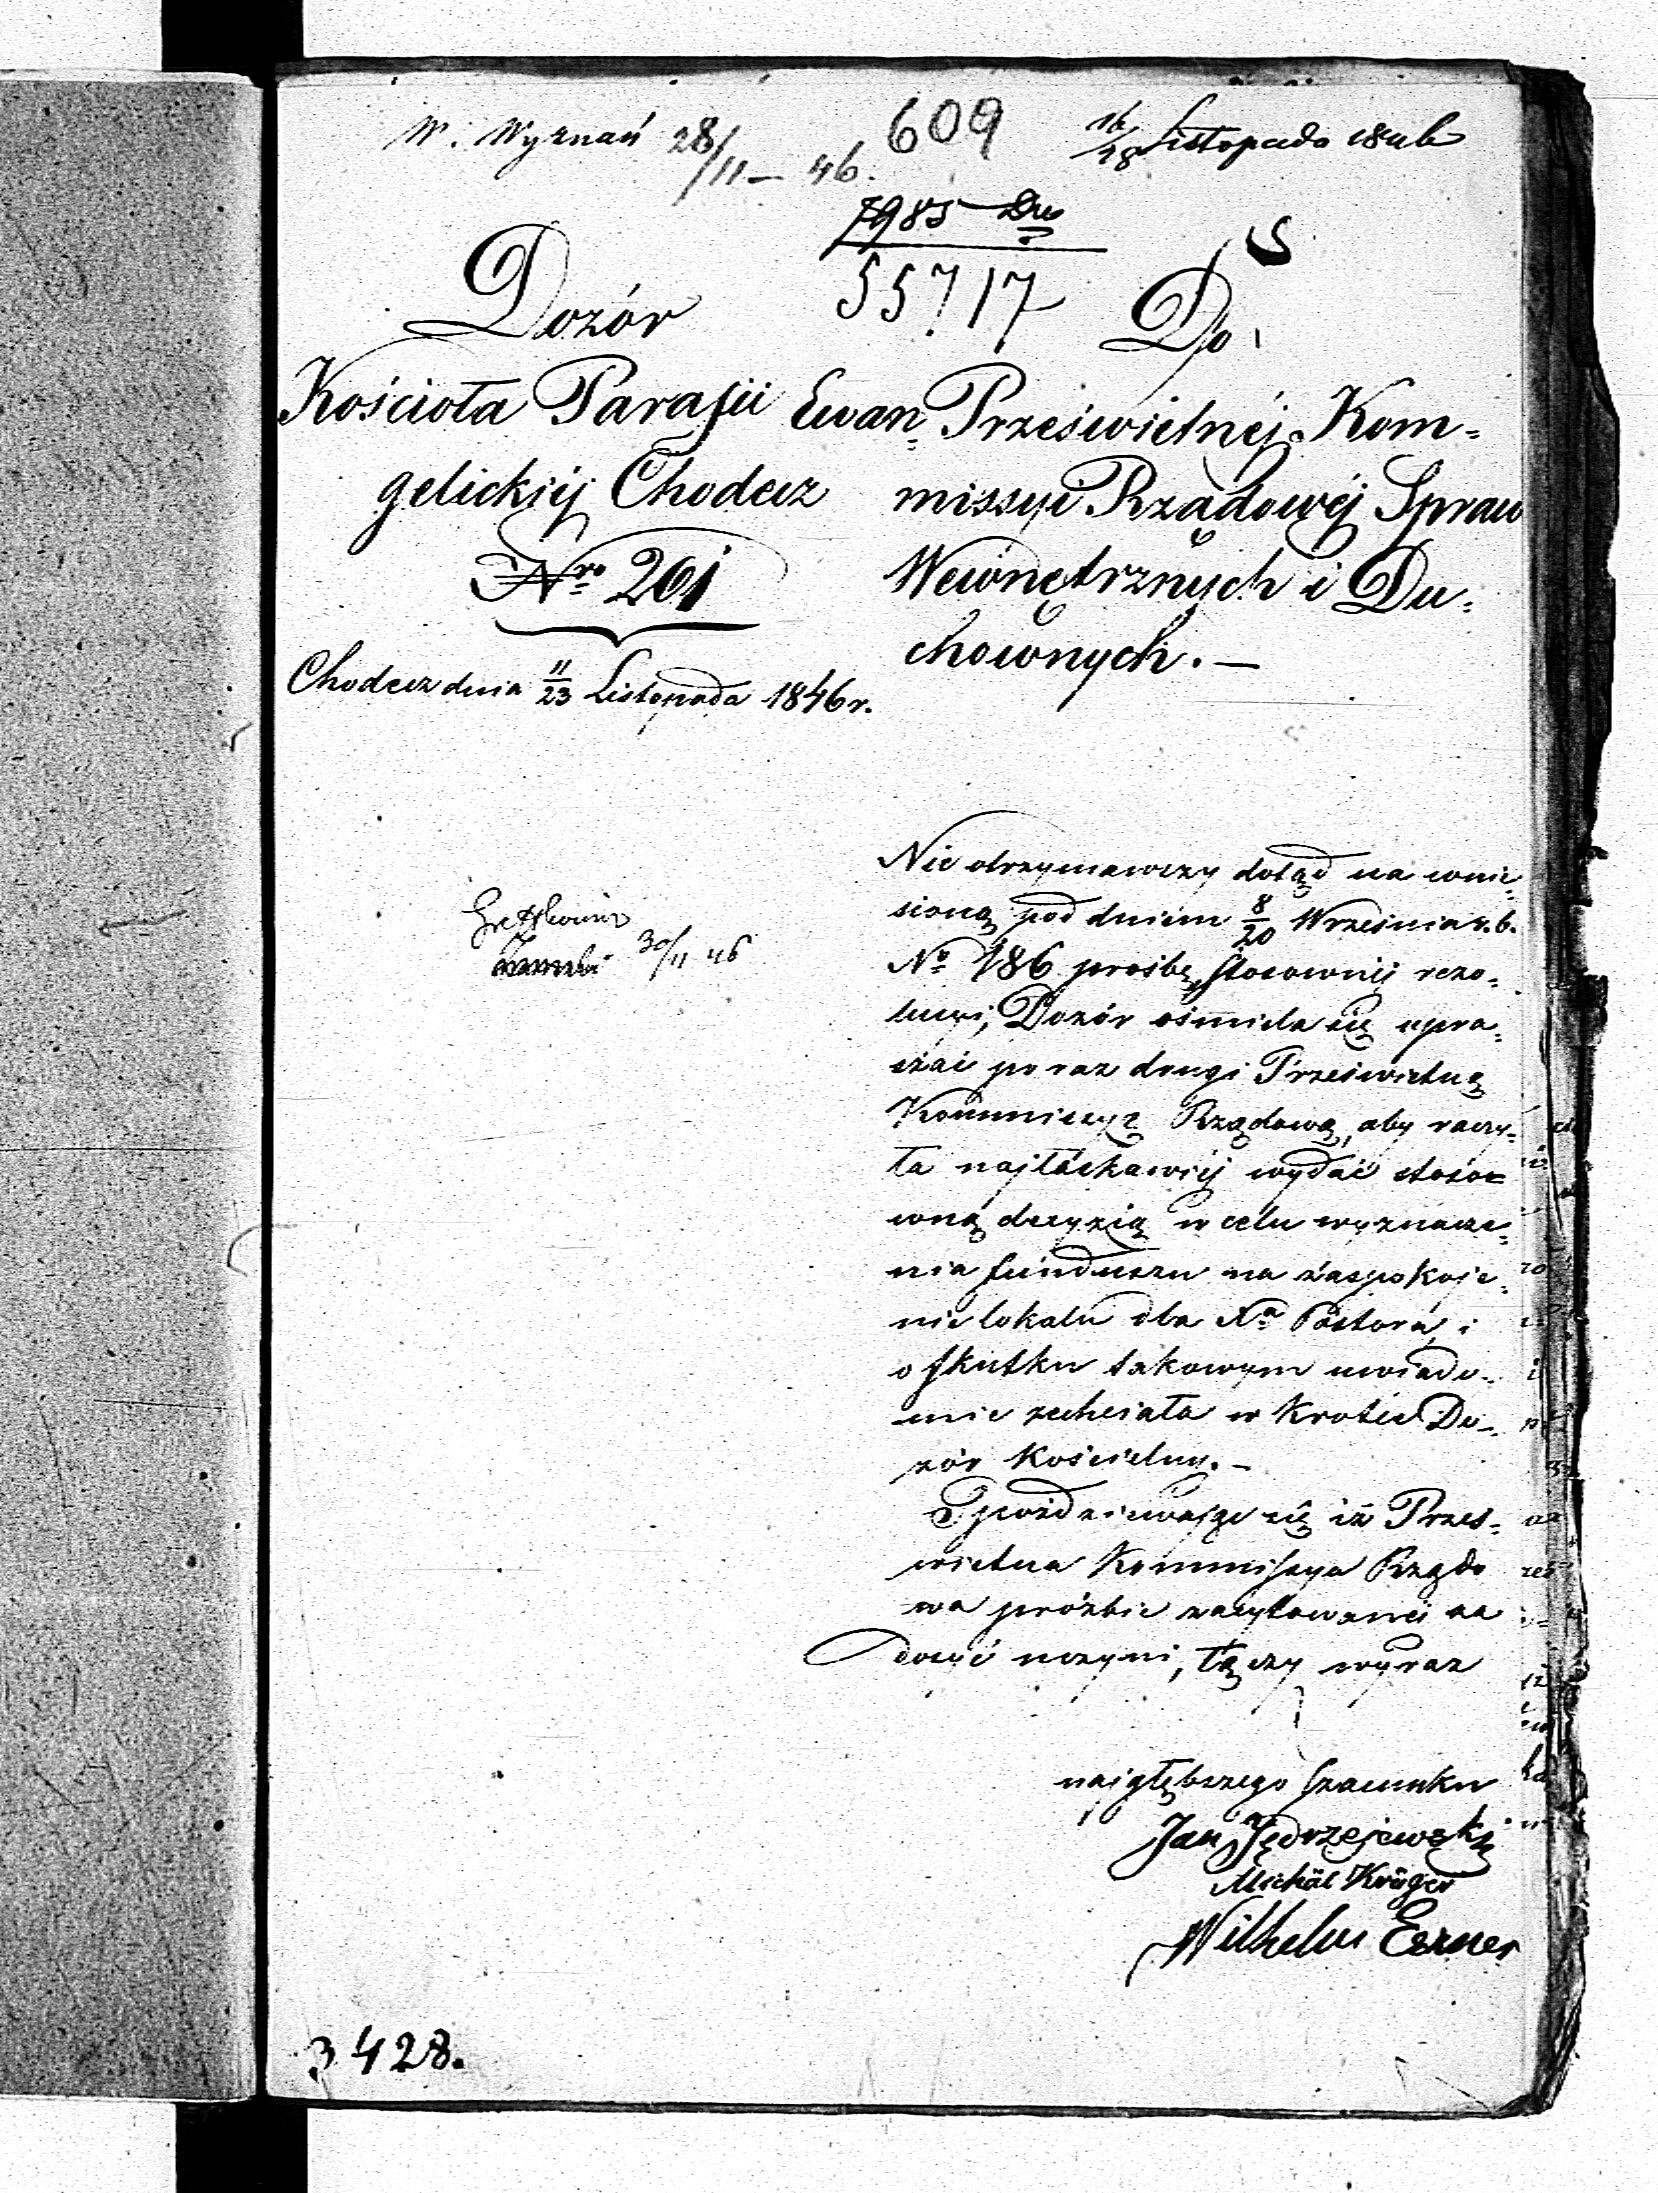 W. Wyznań 28/11 – 46.
609
16/28 Listopada 1846
7985
55717
Dozór
Kościoła Parafii Ewan-
gelickiéj Chodecz
Nro 261
Chodecz dnia 11/23 Listopada 1846 r.
Do
Prześwietnéj Kom-
missyi Rządowéj Spraw
Wewnętrznych i Du-
chownych. –
30/11 46
Nie otrzymawszy dotąd na wnie-
sioną pod dniem 8/20 Września r. b.
No 186 prośbę, stosownéj rezo-
lucyi, Dozór ośmiela się upra-
szać po raz drugi Prześwietną
Kommissyę Rządową, aby raczy-
ła najłaskawiéj wydać stoso-
wną decyzią w celu wyznacze-
nia funduszu na zaspokoje-
nie lokalu dla Na Pastora, i
o skutku takowym uwiado-
mić zechciała w krotce Do-
zór Kościelny. –
Spodziewając się iż Prześ-
wietna Kommissya Rządo
wa prózbie zacytowanéj za
dosyć uczyni, łączy wyraz
najgłębszego szacunku
Jan Jędrzejewski
Michäl Krüger
Wilhelm Eszner
3428.